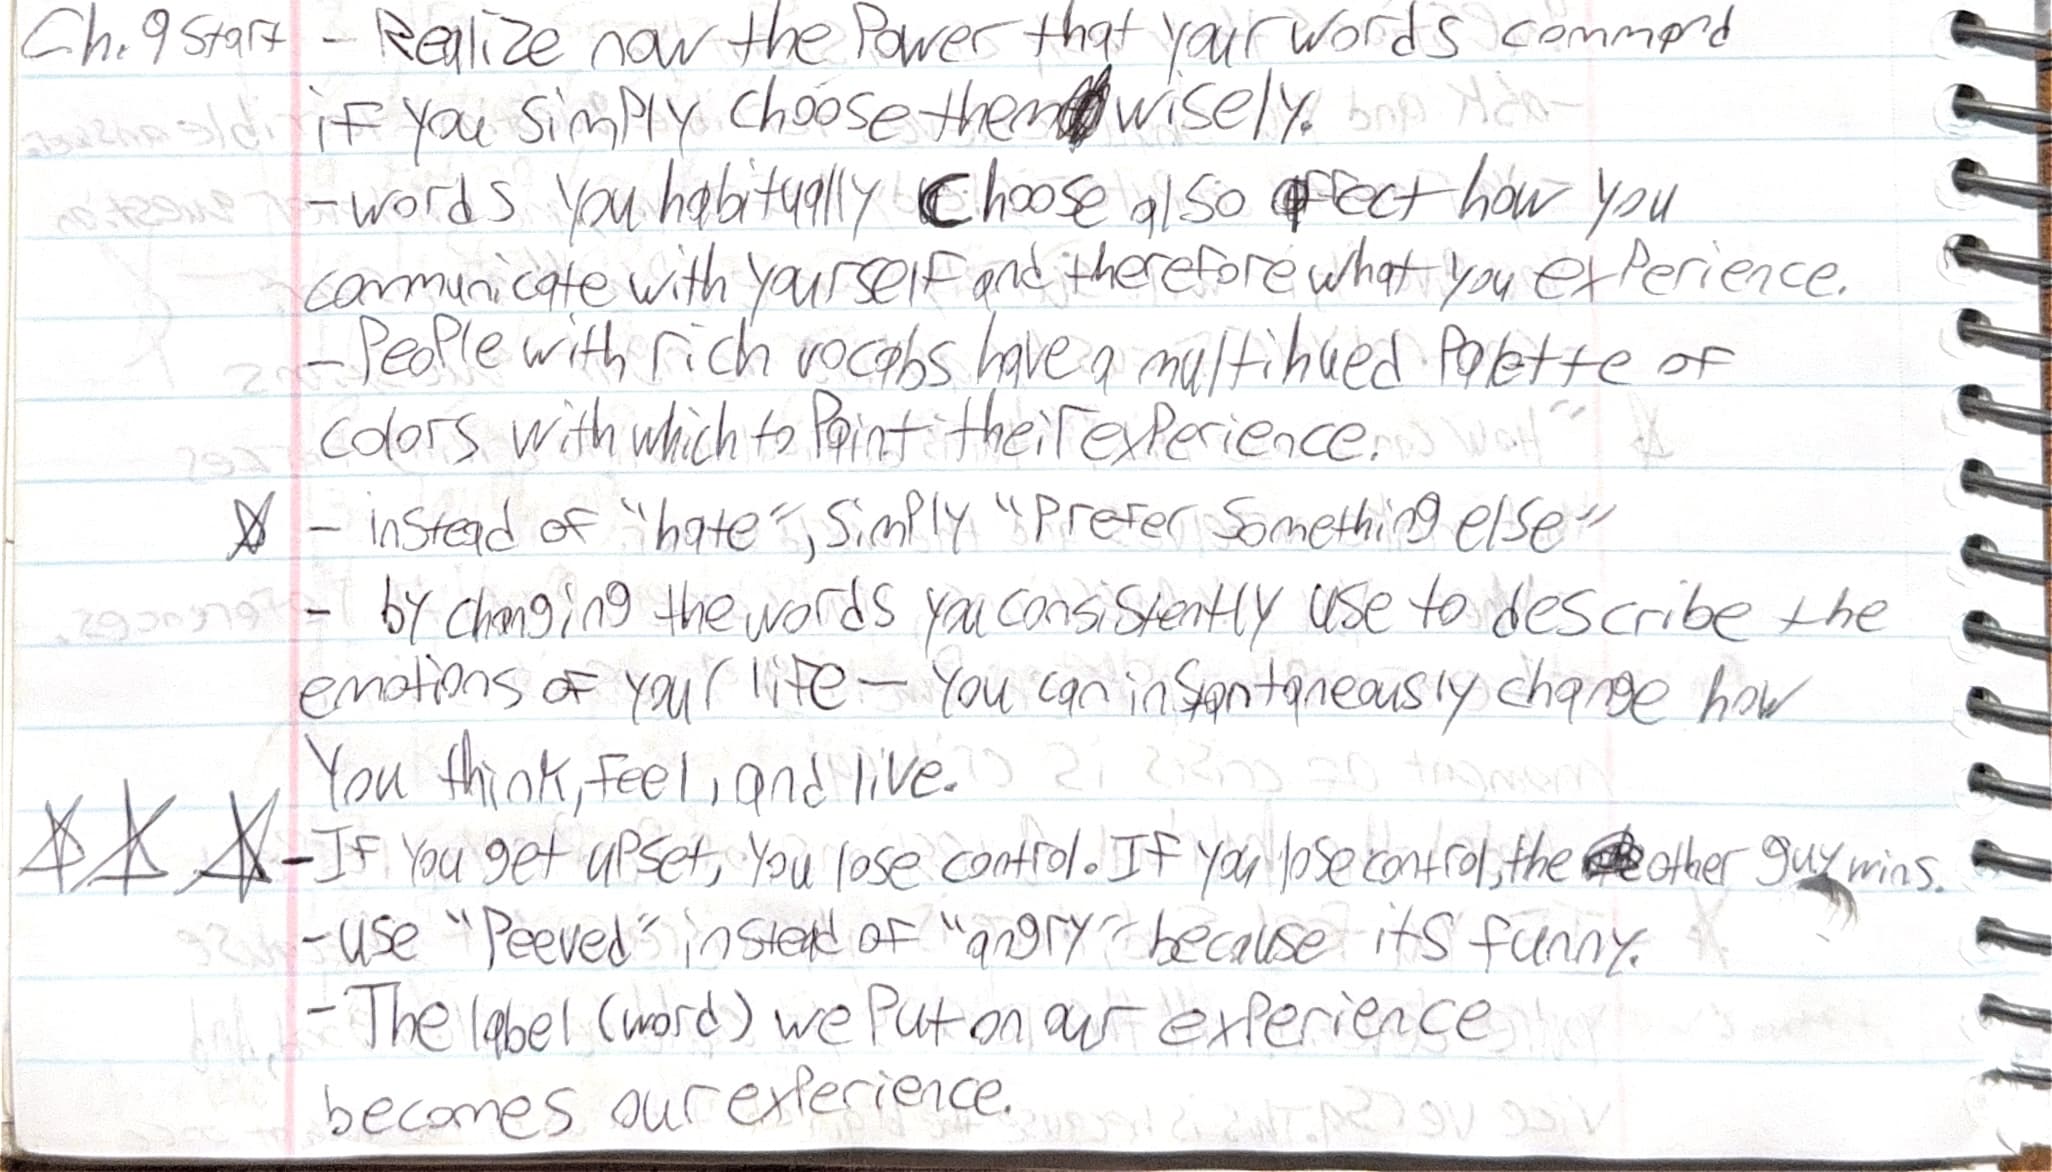 Ch. 9 Start - Realize now the Power that your words command
if you simply choose them wisely.
- words you habitually choose also affect how you
communicate with yourself and therefore what you experience.
- People with rich vocabs have a multihued Palette of
colors with which to Paint their experience.
☆ - instead of "hate", simply "Prefer something else"
- by changing the words you consistently use to describe the
emotions of your life — you can instantaneously change how
You think, feel, and live.
☆☆☆ - If you get upset, you lose control. If you lose control, the other guy wins.
- use "Peeved" instead of "angry" because its funny.
- The label (word) we Put on our experience
becomes our experience.